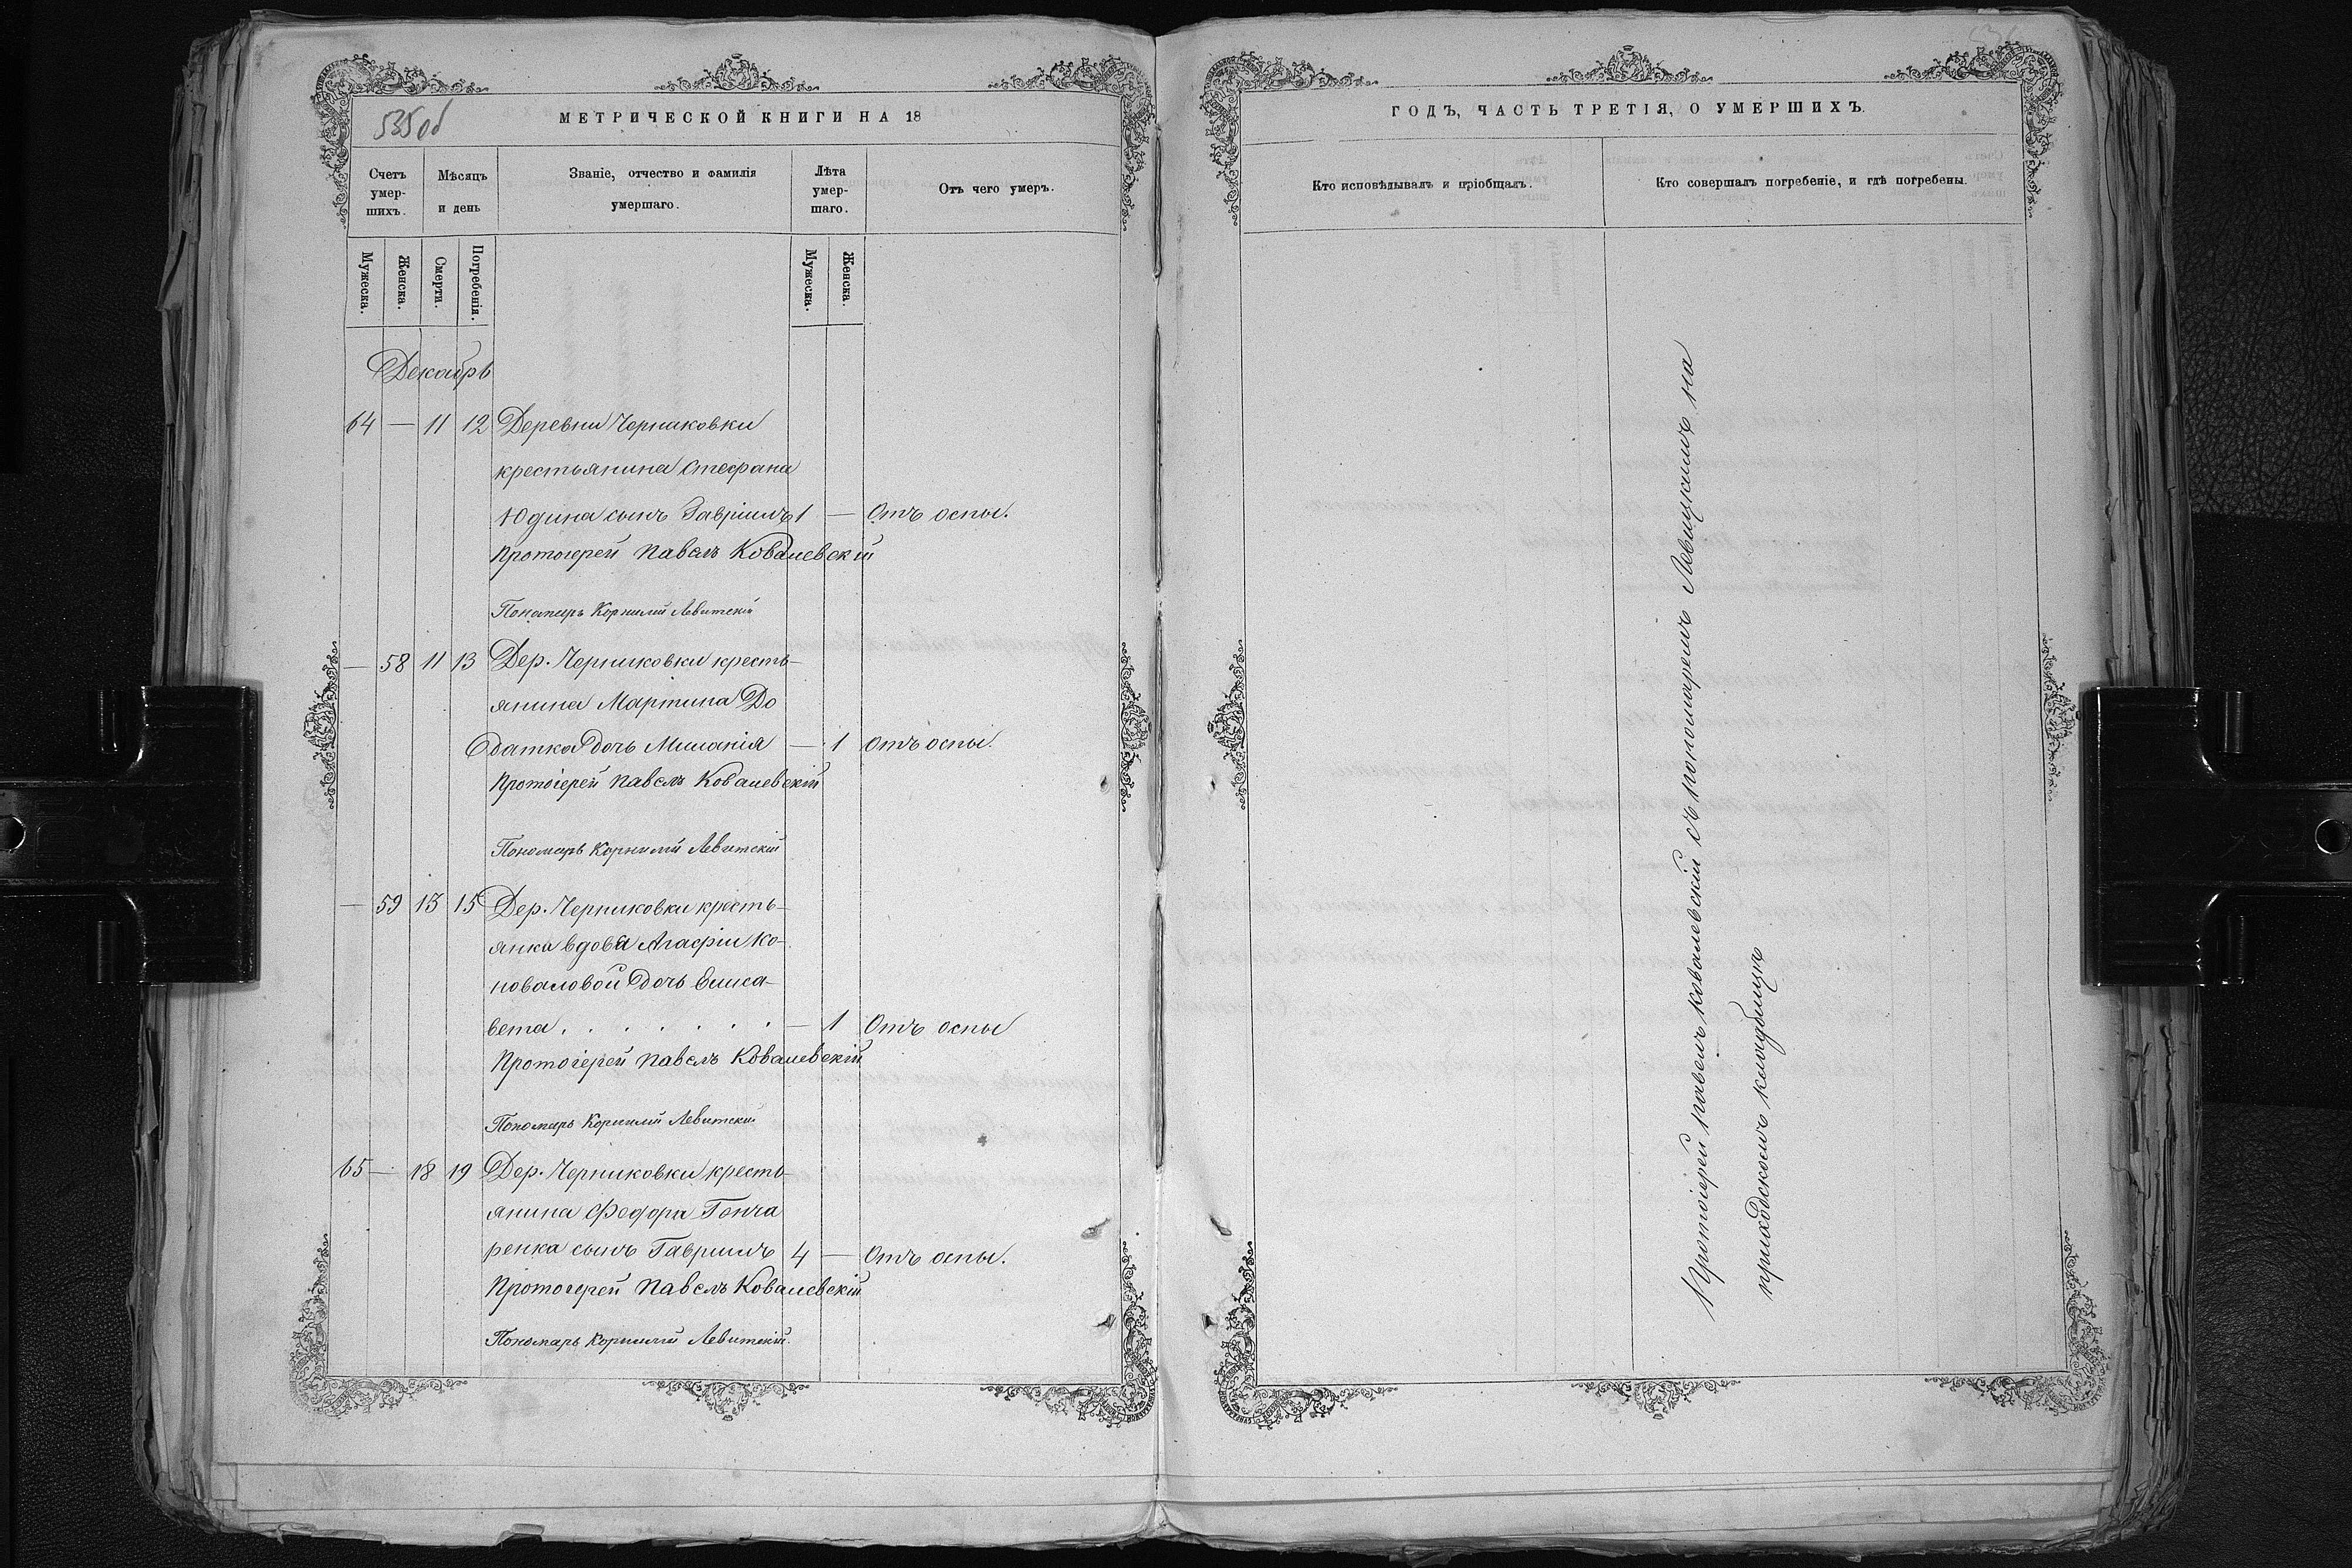 535об
МЕТРИЧЕСКОЙ КНИГИ НА 18
Счетъ умер- шихъ.
Мѣсяцъ и день
Званіе, отчество и фамилія умершаго.
Лѣта умер- шаго.
Отъ чего умеръ.
Мужеска. Женска. Смерти. Погребенія. Мужеска. Женска.
Декабрь
64 — 11 12 Деревни Черниковки
крестьянина Стефана
Юдина сынъ Гавріилъ 1 — Отъ оспы.
Протоіерей Павелъ Ковалевскій
Пономарь Корнилій Левитскій
— 58 11 13 Дер. Черниковки кресть-
янина Мартина До
датка дочь Миланія — 1 Отъ оспы.
Протоіерей Павелъ Ковалевскій
Пономарь Корнилій Левитскій
— 59 13 15 Дер. Черниковки кресть-
янка вдова Агафіи Ко-
новаловой дочь Елиса-
вета . . . . . . . — 1 Отъ оспы
Протоіерей Павелъ Ковалевскій
Пономарь Корнилій Левитскій
65 — 18 19 Дер. Черниковки кресть-
янина Федора Гонча
ренка сынъ Гавриилъ 4 — Отъ оспы.
Протоіерей Павелъ Ковалевскій
Пономарь Корнилій Левитскій.
ГОДЪ, ЧАСТЬ ТРЕТІЯ, О УМЕРШИХЪ.
Кто исповѣдывалъ и пріобщалъ.
Кто совершалъ погребеніе, и гдѣ погребены.
Протоіерей Павелъ Ковалевскій съ пономаремъ Левицкимъ на
приходскомъ кладбищѣ